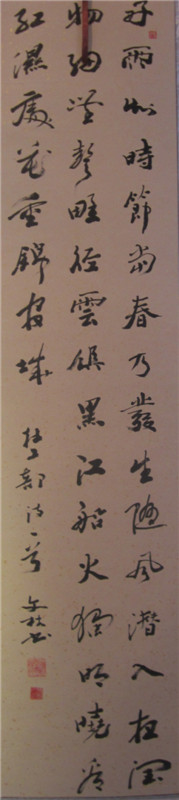 好雨知時節當春乃發生隨風潛入夜潤
物細無聲野徑雲俱黑江船火獨明曉看
紅濕處花重錦官城 杜工部詩一首